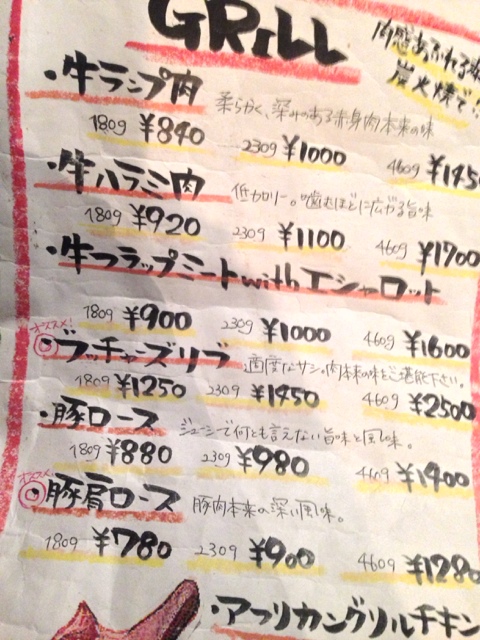 GRILL
肉感あふれる
炭火焼で!!
・牛ランプ肉 柔らかく、深みのある赤身肉本来の味
180g ¥840 230g ¥1000 460g ¥145
・牛ハラミ肉 低カロリー。噛むほどに広がる旨味
180g ¥920 230g ¥1100 460g ¥1700
・牛フラップミートwithエシャロット
180g ¥900 230g ¥1000 460g ¥1600
オススメ!
ブッチャーズリブ 適度なサシ。肉本来の味をご堪能下さい。
180g ¥1250 230g ¥1450 460g ¥2500
・豚ロース ジューシーで何とも言えない旨味と風味。
180g ¥880 230g ¥980 460g ¥1400
オススメ!
豚肩ロース 豚肉本来の深い風味。
180g ¥780 230g ¥900 460g ¥1280
・アフリカングリルチキン